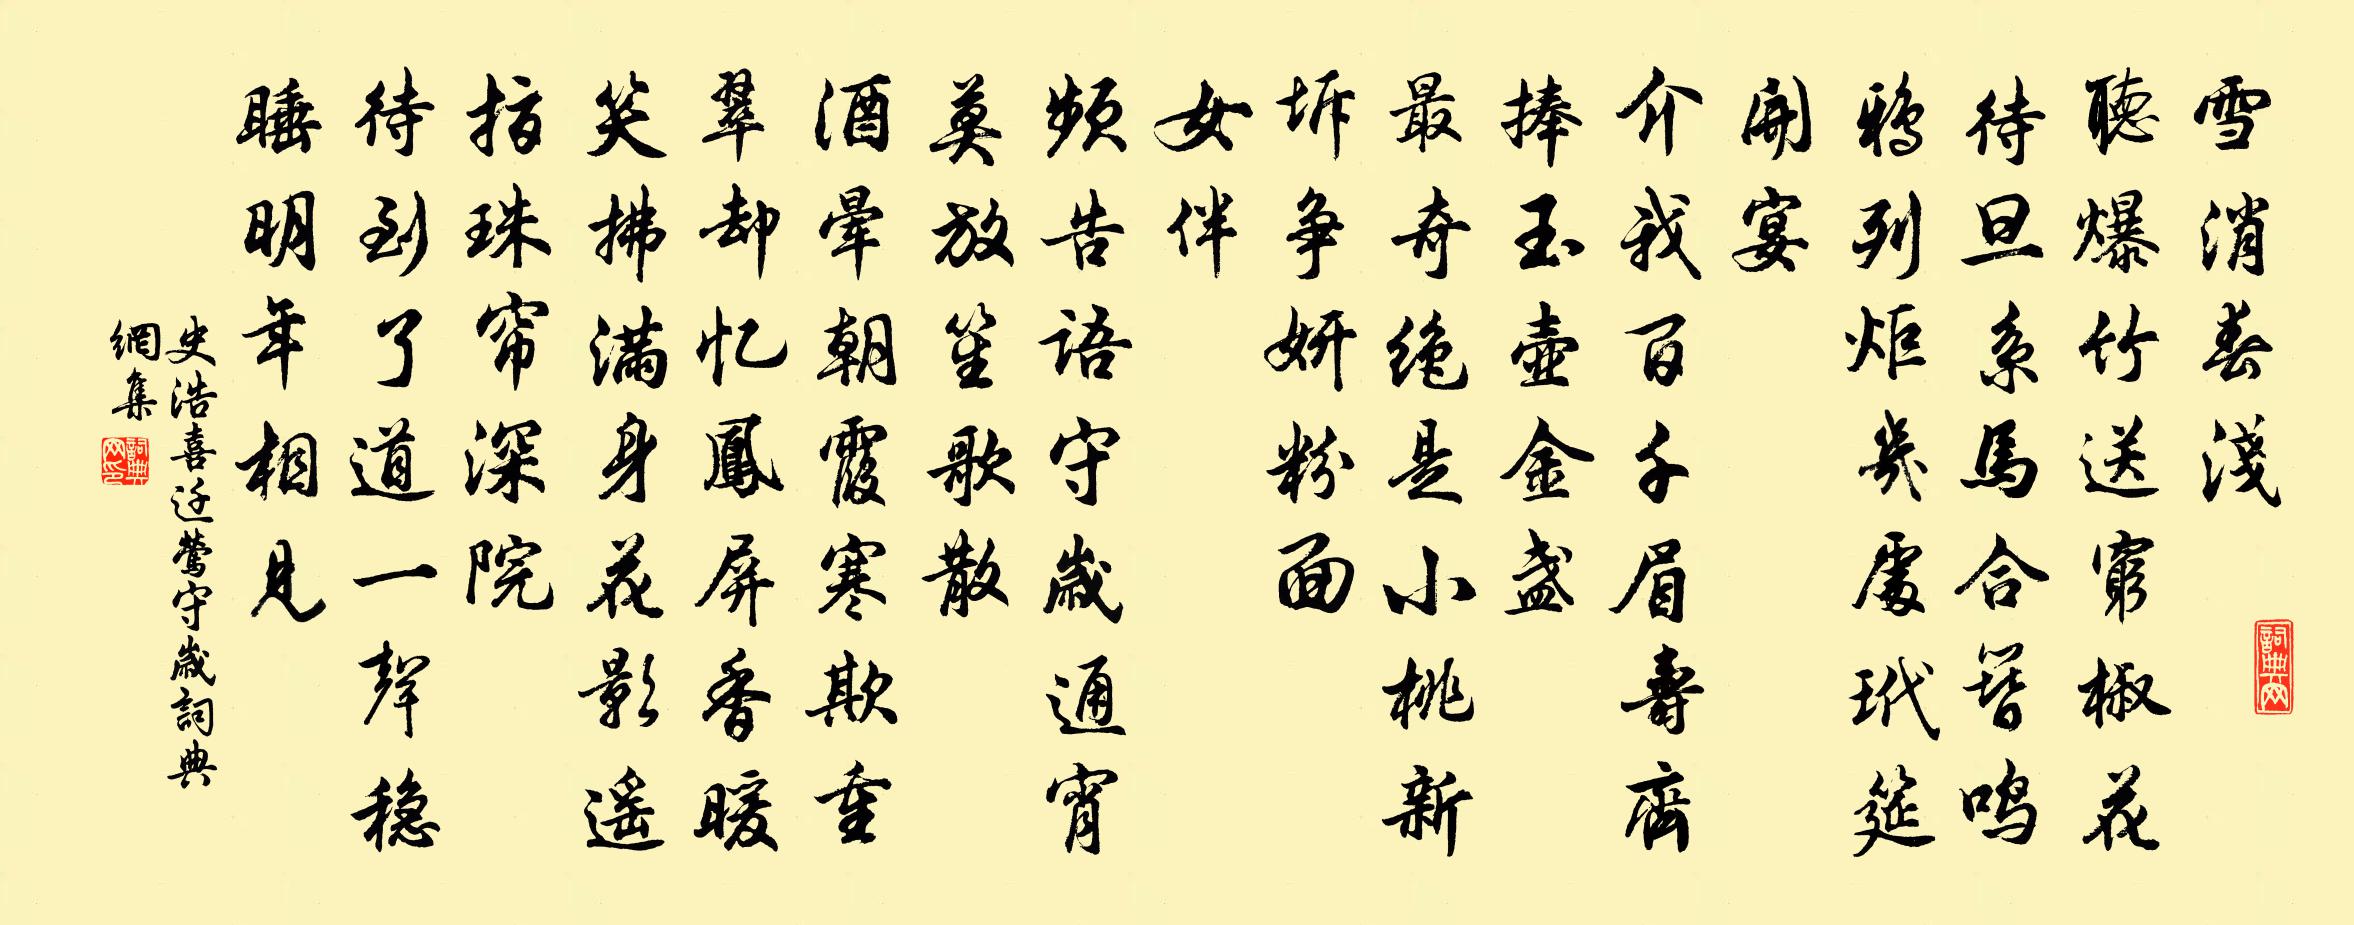 雪消春淺
聽爆竹送窮椒花
待旦系馬合簪鳴
鴉列炬幾處玳筵
開宴
介我百千眉壽齊
捧玉壺金盞
最奇绝是小桃新
坼争妍粉面
女伴
頻告語守歲通宵
莫放笙歌散
酒暈朝霞寒欺重
翠却忆鳳屏香暖
笑拂滿身花影遥
指珠帘深院
待到了道一聲稳
睡明年相見
史浩喜迁鶯守歲詞典
網集
詞典网
詞典网印